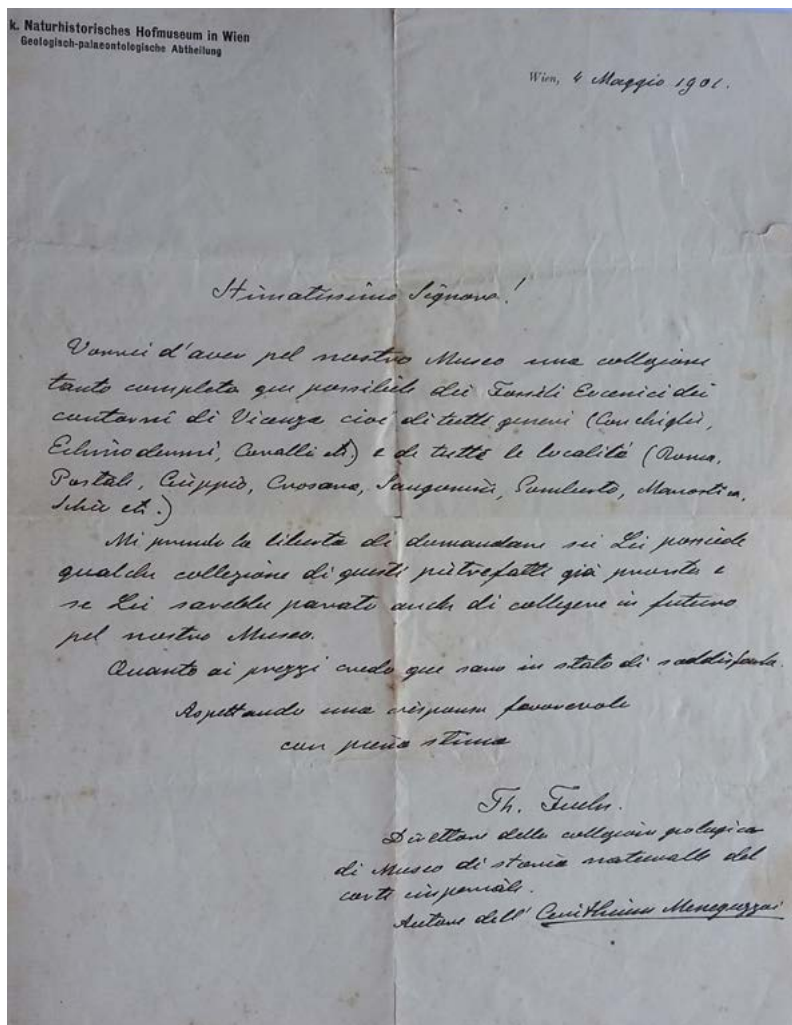 k. Naturhistorisches Hofmuseum in Wien
Geologisch-palaeontologische Abtheilung
Wien, 4 Maggio 1901.
Stimatissimo Signore!
Vorrei d'aver pel nostro Museo una collezione
tanto completa que possibile dei Fossili Eocenici dei
contorni di Vicenza cioè di tutti generi (Conchiglie,
Echinodermi, Coralli etc.) e de tutte le località (Ronca,
Postale, Ciuppio, Crosara, Sangonini, Gomberto, Marostica,
Schio etc.)
Mi prendo la liberta di demandare sei Lei possiede
qualche collezione di questi pietrefatti già pronta e
se Lei sarebbe parato anche di collegere in futuro
pel nostro Museo.
Quanto ai prezzi credo que saro in stato di soddisfarla.
Aspettando una risponsa favorevole
con piena stima
Th. Fuchs.
Direttore della collezione geologica
di Museo di storia naturalle del
corte imperiale.
Autore dell' Cerithium Meneguzzoi